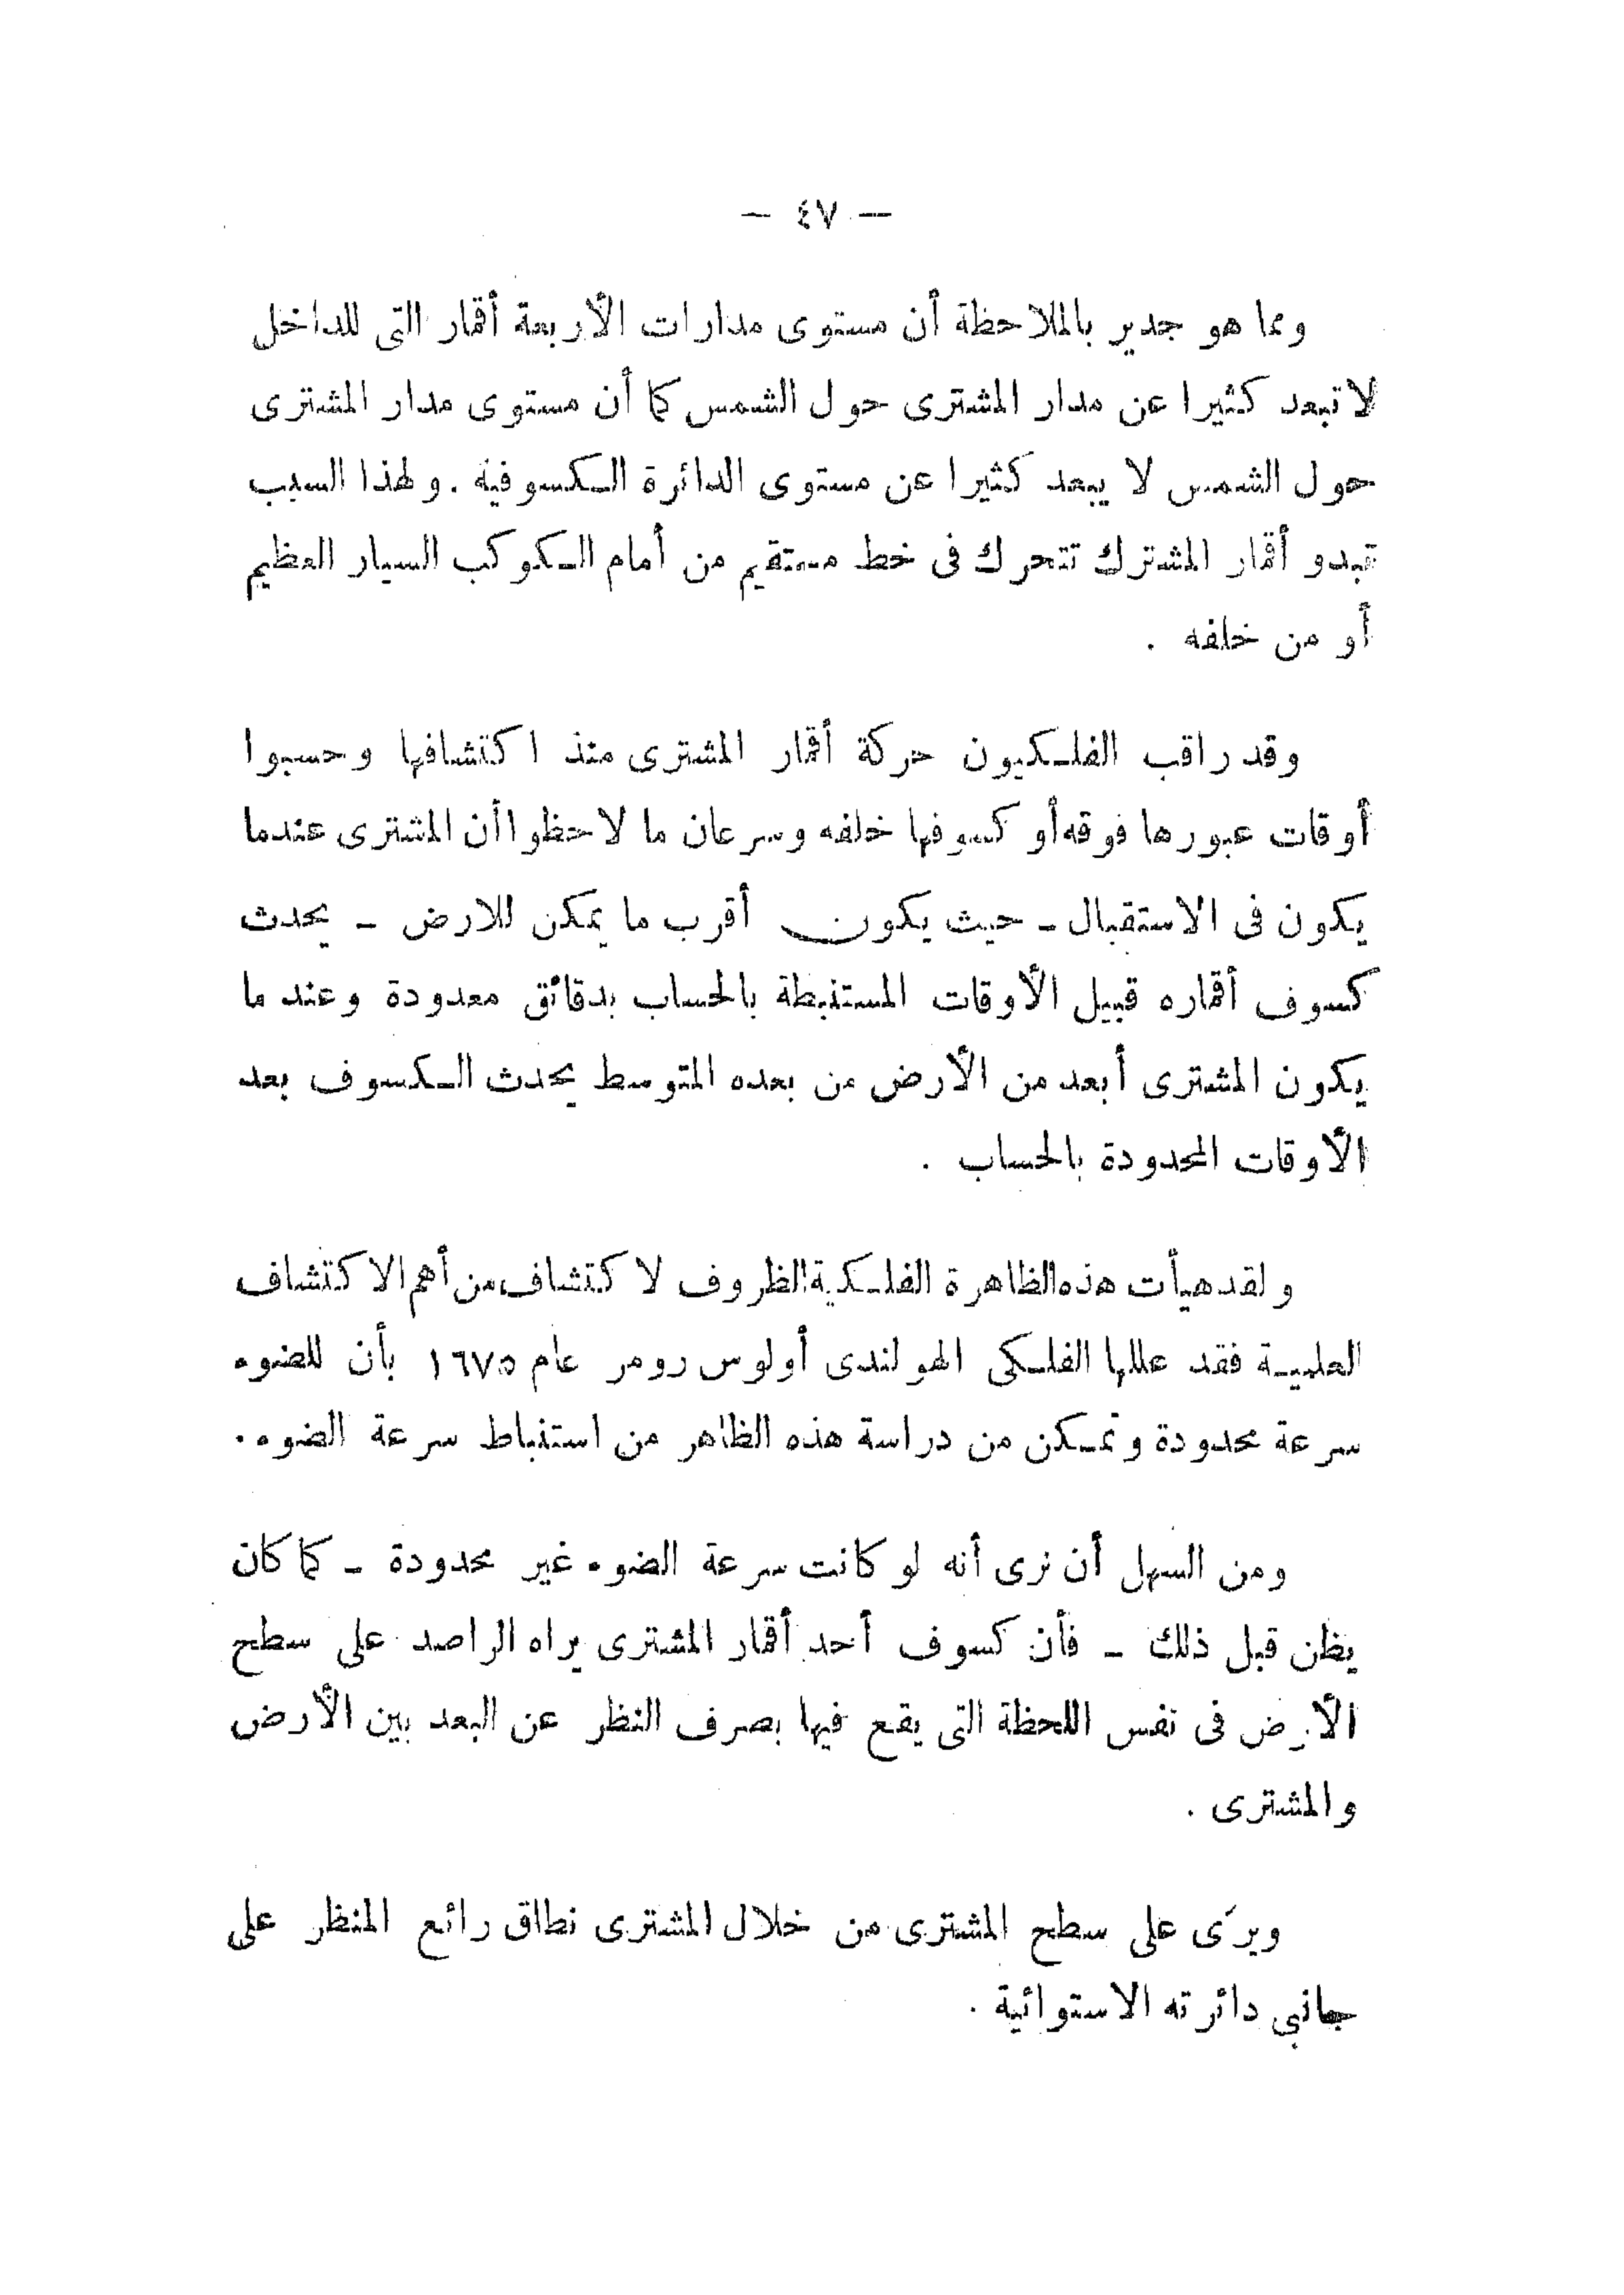 — ٤٧ —
ومما هو جدير بالملاحظة أن مستوى مدارات الأربعة أقمار التى للداخل
لا تبعد كثيرا عن مدار المشترى حول الشمس كما أن مستوى مدار المشترى
حول الشمس لا يبعد كثيرا عن مستوى الدائرة الكسوفية . ولهذا السبب
تبدو أقمار المشترك تتحرك فى خط مستقيم من أمام الكوكب السيار العظيم
أو من خلفه .
وقد راقب الفلكيون حركة أقمار المشترى منذ اكتشافها وحسبوا
أوقات عبورها فوقه أو كسوفها خلفه وسرعان ما لاحظوا أن المشترى عندما
يكون فى الاستقبال - حيث يكون أقرب ما يمكن للارض - يحدث
كسوف أقماره قبيل الأوقات المستنبطة بالحساب بدقائق معدودة وعند ما
يكون المشترى أبعد من الأرض من بعده المتوسط يحدث الكسوف بعد
الأوقات المحدودة بالحساب .
ولقد هيأت هذه الظاهرة الفلكية الظروف لاكتشاف من أهم الاكتشاف
العلمية فقد عللها الفلكى الهولندى أولوس رومر عام ١٦٧٥ بأن للضوء
سرعة محدودة وتمكن من دراسة هذه الظاهر من استنباط سرعة الضوء .
ومن السهل أن نرى أنه لو كانت سرعة الضوء غير محدودة - كما كان
يظن قبل ذلك - فأن كسوف أحد أقمار المشترى يراه الراصد على سطح
الأرض فى نفس اللحظة التى يقع فيها بصرف النظر عن البعد بين الأرض
والمشترى .
ويرَى على سطح المشترى من خلال المشترى نطاق رائع المنظر على
جانبى دائرته الاستوائية .